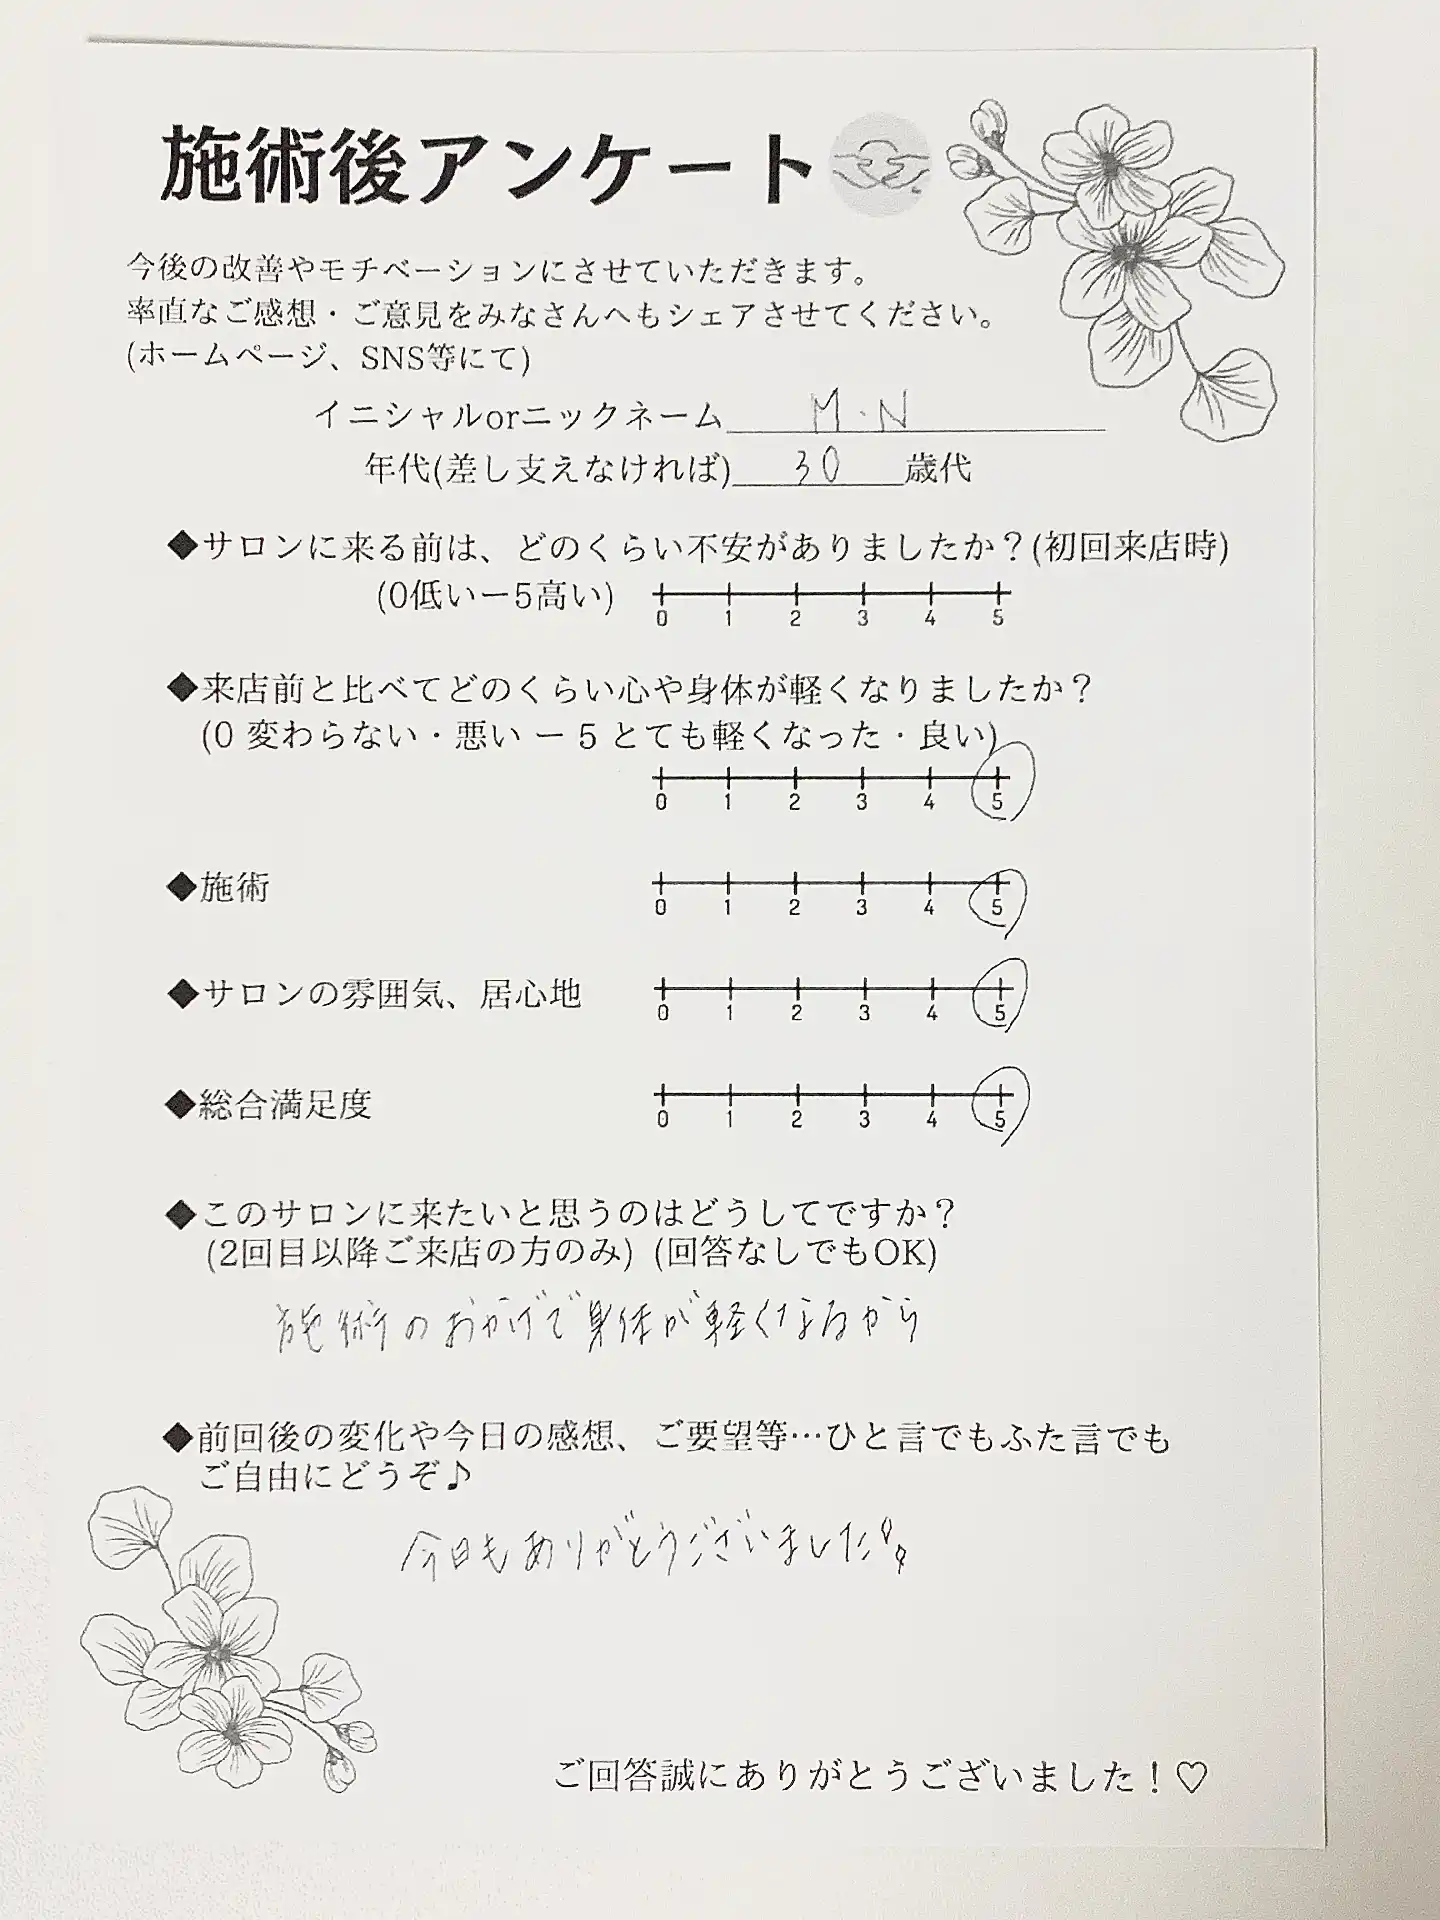 施術後アンケート
今後の改善やモチベーションにさせていただきます。
率直なご感想・ご意見をみなさんへもシェアさせてください。
(ホームページ、SNS等にて)
イニシャルorニックネーム M.N
年代(差し支えなければ) 30 歳代
◆サロンに来る前は、どのくらい不安がありましたか？(初回来店時)
(0低いー5高い)
0 1 2 3 4 5
◆来店前と比べてどのくらい心や身体が軽くなりましたか？
(0 変わらない・悪い ー 5 とても軽くなった・良い)
0 1 2 3 4 5
◆施術
0 1 2 3 4 5
◆サロンの雰囲気、居心地
0 1 2 3 4 5
◆総合満足度
0 1 2 3 4 5
◆このサロンに来たいと思うのはどうしてですか？
(2回目以降ご来店の方のみ) (回答なしでもOK)
施術のおかげで身体が軽くなるから
◆前回後の変化や今日の感想、ご要望等…ひと言でもふた言でも
ご自由にどうぞ♪
今日もありがとうございました!!
ご回答誠にありがとうございました！♡